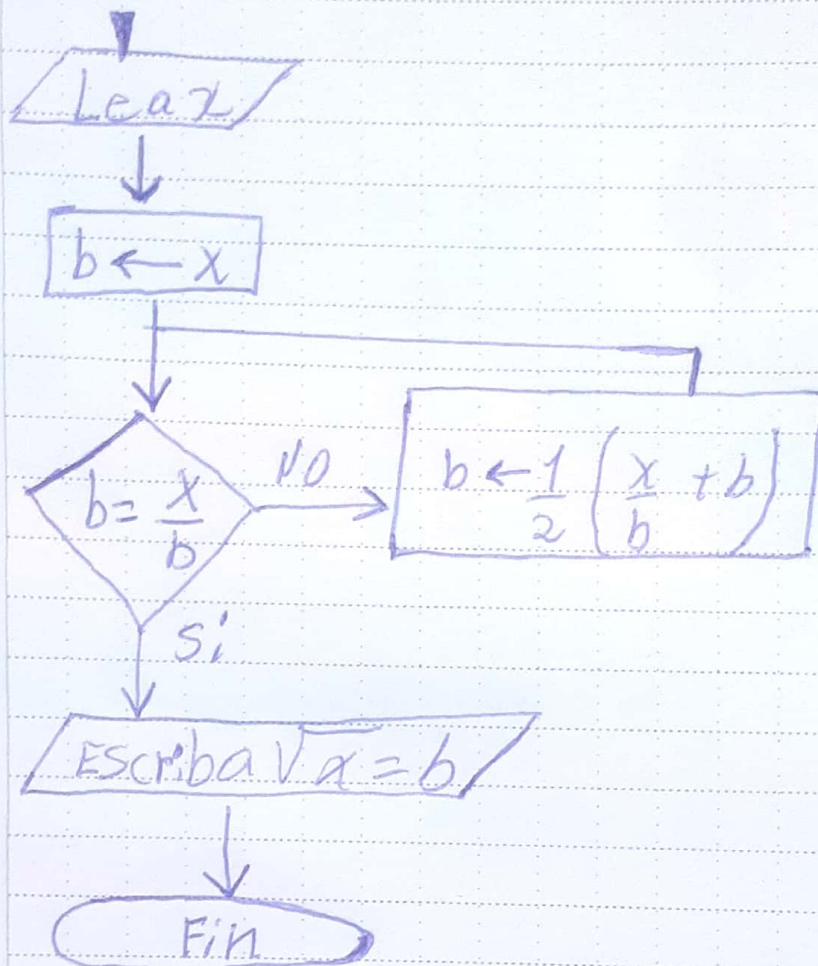 Lea x
b ← x
b = x/b
NO
b ← 1/2 (x/b + b)
Si
Escriba √x = b
Fin